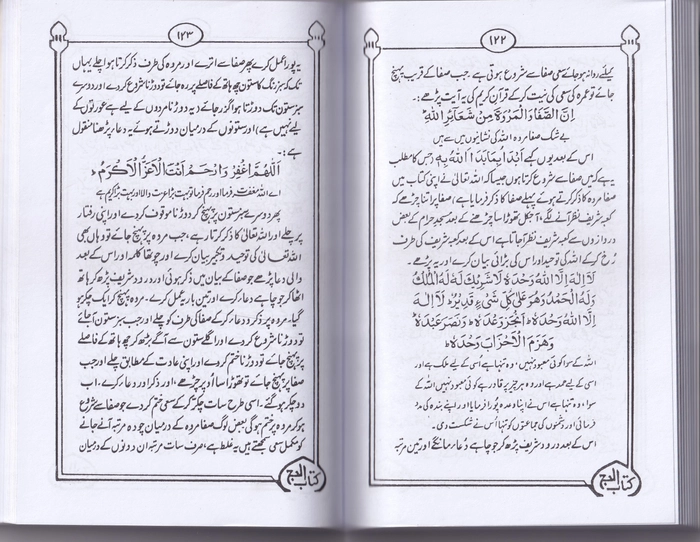 ۱۲۲
کیلئے روانہ ہو جائے سعی صفا سے شروع ہوتی ہے۔ جب صفا کے قریب پہنچ
جائے تو عمرہ کی سعی کی نیت کر کے قرآن کریم کی یہ آیت پڑھے:۔
اِنَّ الصَّفَا وَالْمَرْوَةَ مِنْ شَعَآئِرِ اللّٰهِ
بے شک صفا مروہ اللہ کی نشانیوں میں سے ہیں
اس کے بعد یوں کہے اَبْدَأُ بِمَا بَدَأَ اللّٰهُ بِهٖ (جس کا مطلب
یہ ہے کہ میں صفا سے شروع کرتا ہوں جیسا کہ اللہ تعالیٰ نے اپنی کتاب میں
صفا مروہ کا ذکر کرتے ہوئے پہلے صفا کا ذکر فرمایا ہے) صفا پر اتنا چڑھے کہ
کعبہ شریف نظر آنے لگے۔ آجکل تھوڑا سا چڑھنے کے بعد مسجد حرام کے بعض
دروازوں سے کعبہ شریف نظر آ جاتا ہے اس کے بعد کعبہ شریف کی طرف
رُخ کر کے اللہ کی توحید اور اس کی بڑائی بیان کرے اور یہ پڑھے۔
لَآ اِلٰهَ اِلَّا اللّٰهُ وَحْدَهٗ لَا شَرِيْكَ لَهٗ لَهُ الْمُلْكُ
وَلَهُ الْحَمْدُ وَهُوَ عَلٰى كُلِّ شَيْءٍ قَدِيْرٌ لَآ اِلٰهَ
اِلَّا اللّٰهُ وَحْدَهٗ اَنْجَزَ وَعْدَهٗ وَنَصَرَ عَبْدَهٗ
وَهَزَمَ الْاَحْزَابَ وَحْدَهٗ
اللہ کے سوا کوئی معبود نہیں، وہ تنہا ہے اُسی کے لیے ملک ہے اور
اسی کے لیے حمد ہے اور وہ ہر چیز پر قادر ہے کوئی معبود نہیں اللہ کے
سوا، وہ تنہا ہے اس نے اپنا وعدہ پورا فرمایا اور اپنے بندہ کی مدد
فرمائی اور دشمنوں کی جماعتوں کو تنہا اُس نے شکست دی۔
اس کے بعد درود شریف پڑھ کر جو چاہے دُعاء مانگے اور تین مرتبہ
کتاب الحج
۱۲۳
یہ پورا عمل کرے پھر صفا سے اترے اور مروہ کی طرف ذکر کرتا ہوا چلے یہاں
تک کہ سبز رنگ کا ستون چھ ہاتھ کے فاصلے پر رہ جائے تو دوڑنا شروع کر دے اور دوسرے
سبز ستون تک دوڑتا ہوا گزر جائے (یہ دوڑنا مردوں کے لیے ہے عورتوں کے
لیے نہیں ہے) اور ستونوں کے درمیان دوڑتے ہوئے یہ دعاء پڑھنا منقول
ہے:۔
اَللّٰهُمَّ اغْفِرْ وَارْحَمْ اَنْتَ الْاَعَزُّ الْاَكْرَمُ
اے اللہ مغفرت فرما اور رحم فرما تو بہت بڑا عزت والا اور بہت بڑا کریم ہے
پھر دوسرے سبز ستون پر پہنچ کر دوڑنا موقوف کر دے اور اپنی رفتار
پر چلے اور اللہ تعالیٰ کا ذکر کرتا رہے، جب مروہ پر پہنچ جائے تو وہاں بھی
اللہ تعالیٰ کی توحید و تکبیر بیان کرے اور چوتھا کلمہ اور اس کے بعد
والی دعا پڑھے جو صفا کے بیان میں ذکر ہوئی اور درود شریف پڑھ کر ہاتھ
اٹھا کر جو چاہے دعاء کرے اور تین بار یہ عمل کرے۔ مروہ پر پہنچ کر ایک چکر ہو
گیا۔ مروہ پر ذکر و دعاء کر کے صفا کی طرف کو چلے اور جب سبز ستون آ جائے
تو دوڑنا شروع کر دے اور اگلے ستون سے آگے بڑھ کر چھ ہاتھ کے فاصلے
پر پہنچ جائے تو دوڑنا ختم کر دے اور اپنی عادت کے مطابق چلے اور جب
صفا پر پہنچ جائے تو تھوڑا سا اُوپر چڑھے، اور ذکر اور دعاء کرے، اب
دو چکر ہو گئے۔ اسی طرح سات چکر کر کے سعی ختم کر دے جو صفا سے شروع
ہو کر مروہ پر ختم ہو گی بعض لوگ صفا مروہ کے درمیان چودہ مرتبہ آنے جانے
کو مکمل سعی سمجھتے ہیں یہ غلط ہے، صرف سات مرتبہ ان دونوں کے درمیان
کتاب الحج